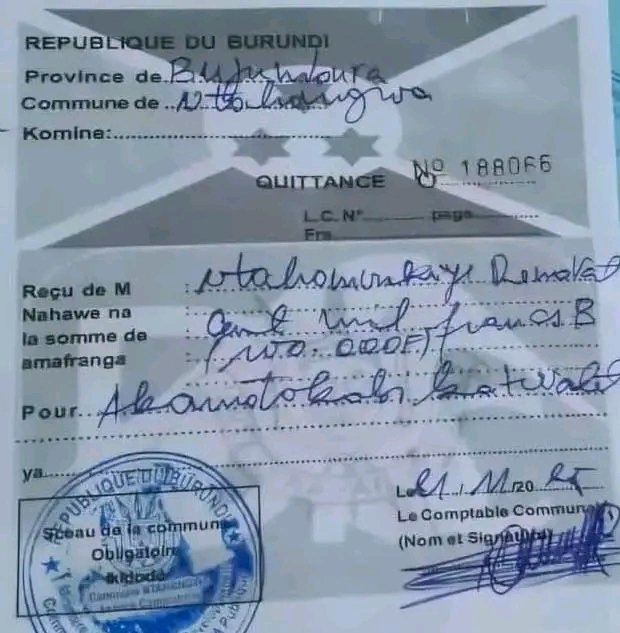 REPUBLIQUE DU BURUNDI
Province de Bujumbura
Commune de Ntahangwa
Komine:
QUITTANCE No 188066
L.C. N° page
Frs
Reçu de M Ntahomvukiye
Nahawe na
la somme de Cent mil francs B
amafranga (100.000F)
Pour
ya
Le 21/11/20 25
Le Comptable Communal
(Nom et Signature)
REPUBLIQUE DU BURUNDI
Sceau de la commune
Obligatoire
Ikidodo
Commune NTAHANGWA